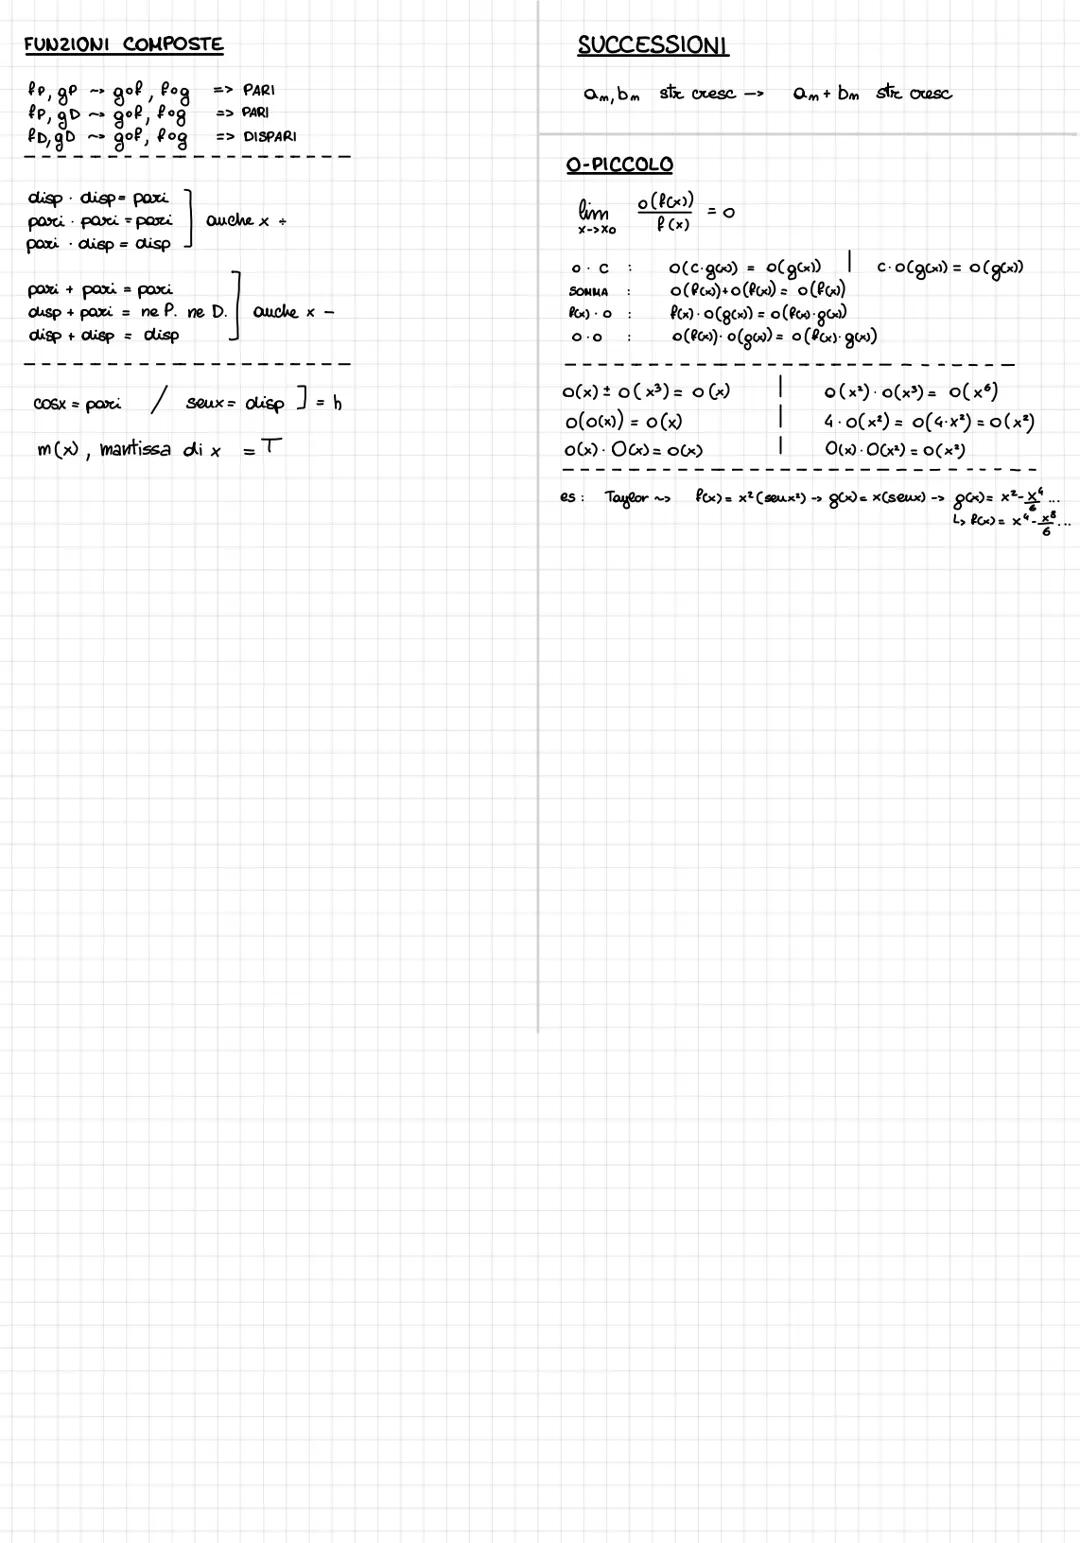 FUNZIONI COMPOSTE
fP, gP ~> gof, fog => PARI
fP, gD ~> gof, fog => PARI
fD, gD ~> gof, fog => DISPARI
disp · disp = pari
pari · pari = pari ] anche x ÷
pari · disp = disp
pari + pari = pari
disp + pari = ne P. ne D. ] anche x -
disp + disp = disp
cosx = pari / senx = disp ] = h
m(x), mantissa di x = T
SUCCESSIONI
am, bm str cresc -> am + bm str cresc
O-PICCOLO
lim x->x0 o(f(x))/f(x) = 0
o · c : o(c·g(x)) = o(g(x)) | c·o(g(x)) = o(g(x))
SOMMA : o(f(x))+o(f(x)) = o(f(x))
f(x) · o : f(x)·o(g(x)) = o(f(x)·g(x))
o·o : o(f(x))·o(g(x)) = o(f(x)·g(x))
o(x) ± o(x³) = o(x) | o(x²)·o(x³) = o(x⁶)
o(o(x)) = o(x) | 4·o(x²) = o(4·x²) = o(x²)
o(x)·O(x) = o(x) | O(x)·O(x²) = o(x²)
es: Taylor ~> f(x) = x²(senx²) -> g(x) = x(senx) -> g(x) = x² - x⁴/6 ...
↳ f(x) = x⁴ - x⁸/6 ...